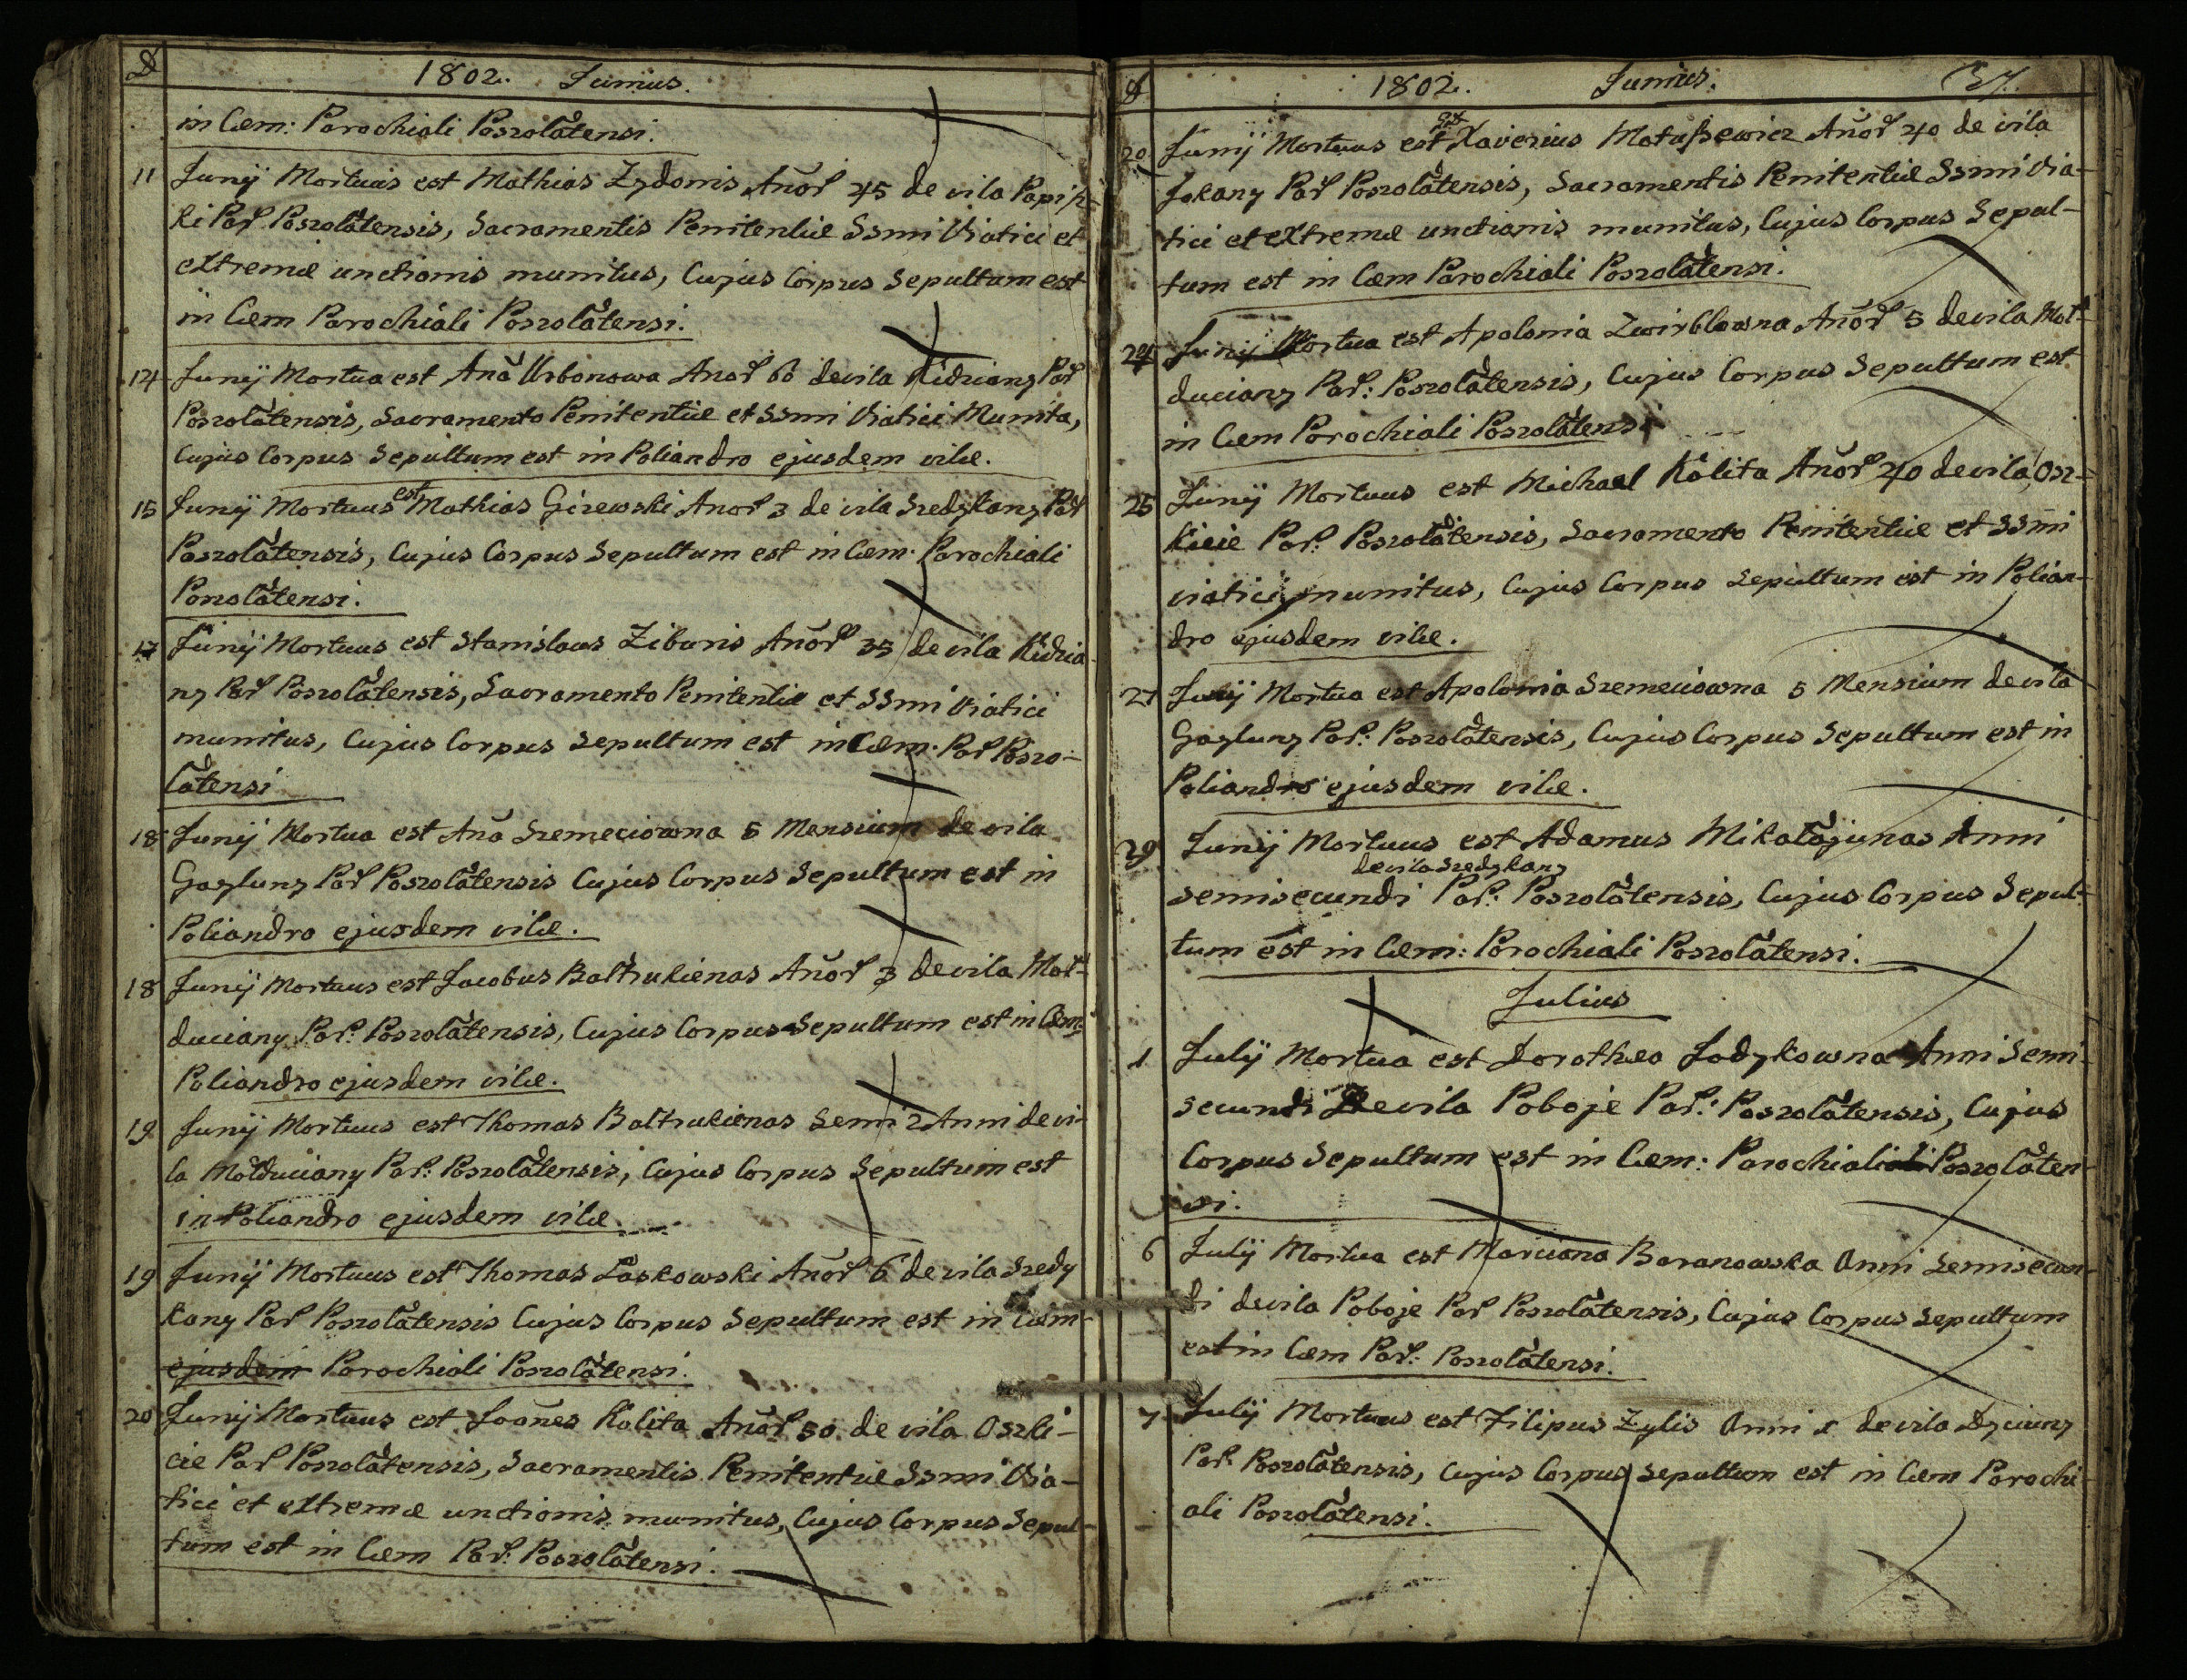 D
1802. Junius.
in Cœm: Parochiali Poszołatensi.
11 Junij Mortuus est Mathias Zydonis Anor 45 de vila Papisz-
ki Par Poszołatensis, Sacramentis Penitentiæ Ssmi Viatici et
extremæ unctionis munitus, Cujus Corpus Sepultum est
in Cœm Parochiali Poszołatensi.
14 Junij Mortua est Ana Urbonowa Anor 60 de vila Kidziany Par
Poszołatensis, Sacramento Penitentiæ et Ssmi Viatici Munita,
Cujus Corpus Sepultum est in Poliandro ejusdem vilæ.
15 Junij Mortuus est Mathias Gizewski Anor 3 de vila Szedykany Par
Poszołatensis, Cujus Corpus Sepultum est in Cœm. Parochiali
Poszołatensi.
17 Junij Mortuus est Stanislaus Ziburis Anor 35 de vila Kidzia-
ny Par Poszołatensis, Sacramento Penitentiæ et SSmi Viatici
munitus, Cujus Corpus Sepultum est in Cœm. Par Poszo-
łatensi
18 Junij Mortua est Ana Szemeciowna 5 Mensium de vila
Gayluny Par Poszołatensis Cujus Corpus Sepultum est in
Poliandro ejusdem vilæ.
18 Junij Mortuus est Jacobus Bałtrukienas Anor 3 de vila Moł-
duciany Par: Poszołatensis, Cujus Corpus Sepultum est in Cœm
Poliandro ejusdem vilæ.
19 Junij Mortuus est Thomas Bałtrukienas Semi 2 Anni de vi-
la Mołduciany Par: Poszołatensis, Cujus Corpus Sepultum est
in Poliandro ejusdem vilæ.
19 Junij Mortuus est Thomas Laskowski Anor 6 de vila Szedy
kany Par Poszołatensis Cujus Corpus Sepultum est in Cœm-
ejusdem Parochiali Poszołatensi.
20 Junij Mortuus est Joanes Kalita Anor 50 de vila Oszki-
cie Par Poszołatensis, Sacramentis Penitentiæ Ssmi Via-
tici et extremæ unctionis munitus, Cujus Corpus Sepul-
tum est in Cœm Par: Poszołatensi.
D
1802. Junius. 37.
20 Junij Mortuus est Xaverius Matuszewicz Anor 40 de vila
Jokany Par Poszołatensis, Sacramentis Penitentiæ Ssmi Via-
tici et extremæ unctionis munitus, Cujus Corpus Sepul-
tum est in Cœm Parochiali Poszołatensi.
24 Junij Mortua est Apolonia Zwirblowna Anor 5 de vila Moł-
duciany Par: Poszołatensis, Cujus Corpus Sepultum est
in Cœm Parochiali Poszołatensi
25 Junij Mortuus est Michael Kalita Anor 40 de vila Osz-
kicie Par: Poszołatensis, Sacramento Penitentiæ et SSmi
viatici munitus, Cujus Corpus Sepultum est in Polian-
dro ejusdem vilæ.
27 Junij Mortua est Apolonia Szemeciowna 5 Mensium de vila
Gayluny Par: Poszołatensis, Cujus Corpus Sepultum est in
Poliandro ejusdem vilæ.
29 Junij Mortuus est Adamus Mikałajunas Anni
de vila Szedykany
semisecundi Par: Poszołatensis, Cujus Corpus Sepul-
tum est in Cœm: Parochiali Poszołatensi.
Julius
1 Julij Mortua est Dorothea Jodykowna Anni Semi-
secundi De vila Poboje Par: Poszołatensis, Cujus
Corpus Sepultum est in Cœm: Parochiali Poszołaten-
si.
6 Julij Mortua est Marciana Baranowska Anni Semisecun-
di de vila Poboje Par Poszołatensis, Cujus Corpus Sepultum
est in Cœm Par: Poszołatensi.
7 Julij Mortuus est Filipus Zylis Anni 1 de vila
Par: Poszołatensis, Cujus Corpus Sepultum est in Cœm Parochi-
ali Poszołatensi.